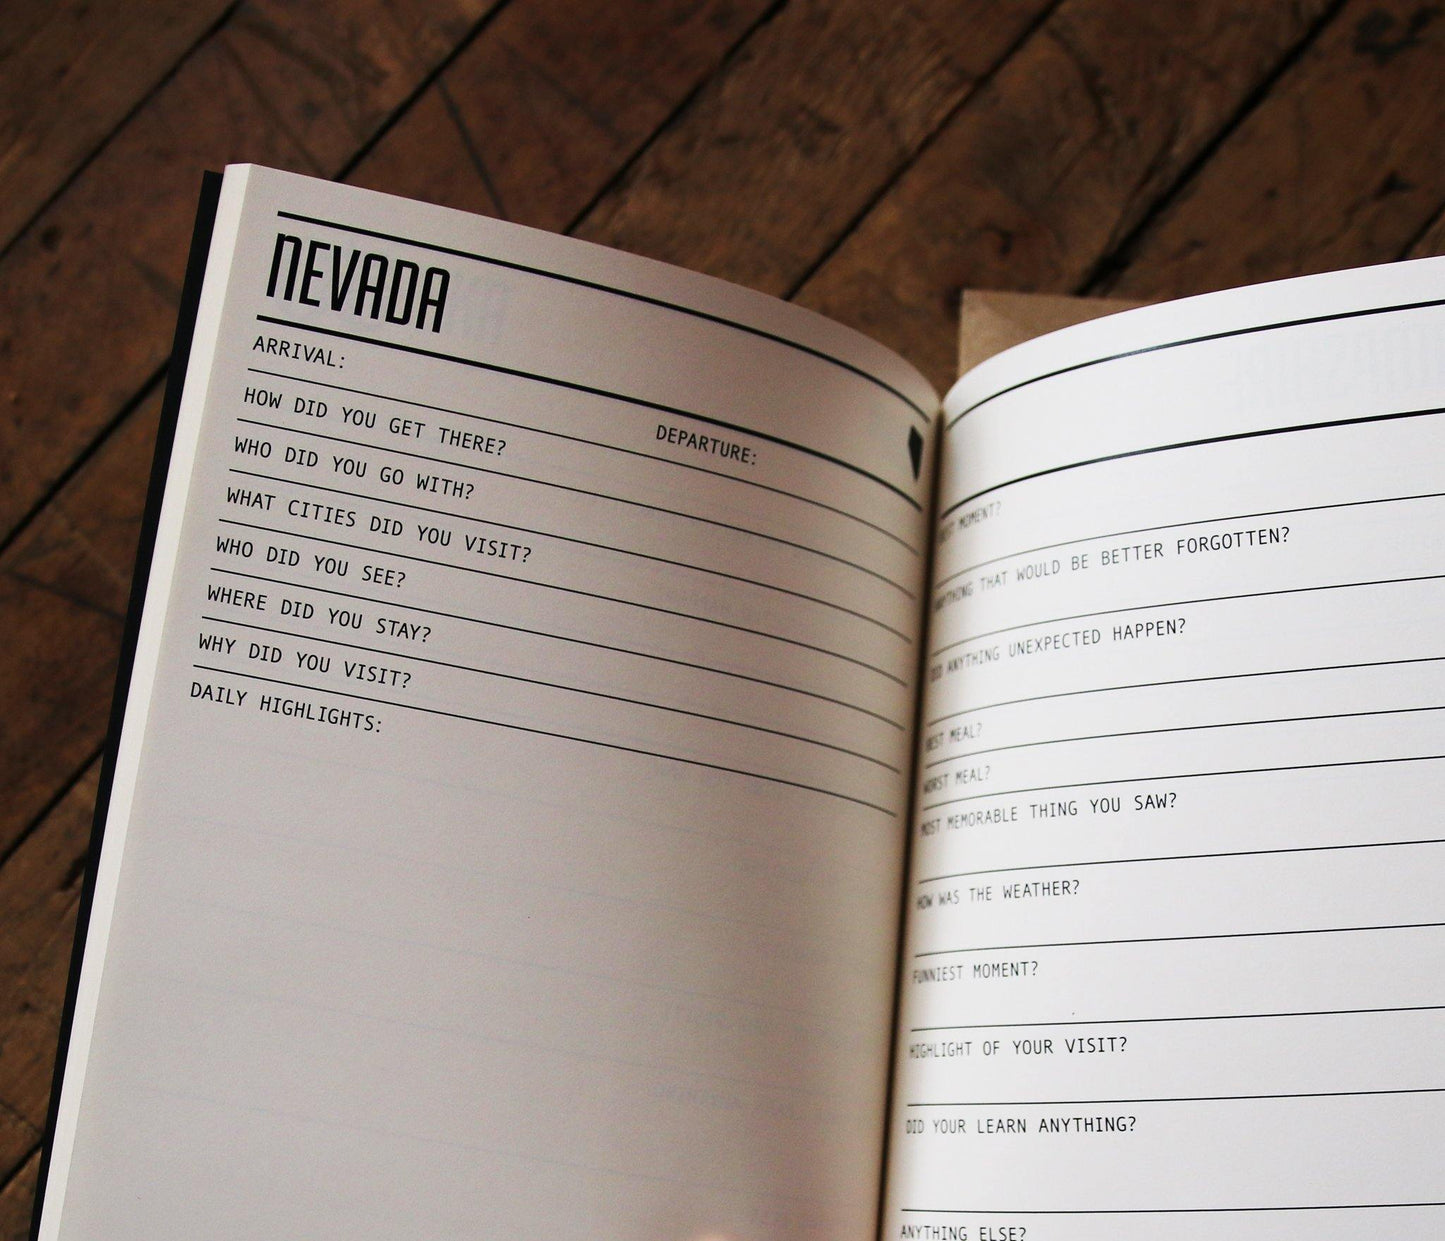 NEVADA
ARRIVAL:
DEPARTURE:
HOW DID YOU GET THERE?
WHO DID YOU GO WITH?
WHAT CITIES DID YOU VISIT?
WHO DID YOU SEE?
WHERE DID YOU STAY?
WHY DID YOU VISIT?
DAILY HIGHLIGHTS:
MOMENT?
ANYTHING THAT WOULD BE BETTER FORGOTTEN?
DID ANYTHING UNEXPECTED HAPPEN?
BEST MEAL?
WORST MEAL?
MOST MEMORABLE THING YOU SAW?
HOW WAS THE WEATHER?
FUNNIEST MOMENT?
HIGHLIGHT OF YOUR VISIT?
DID YOUR LEARN ANYTHING?
ANYTHING ELSE?